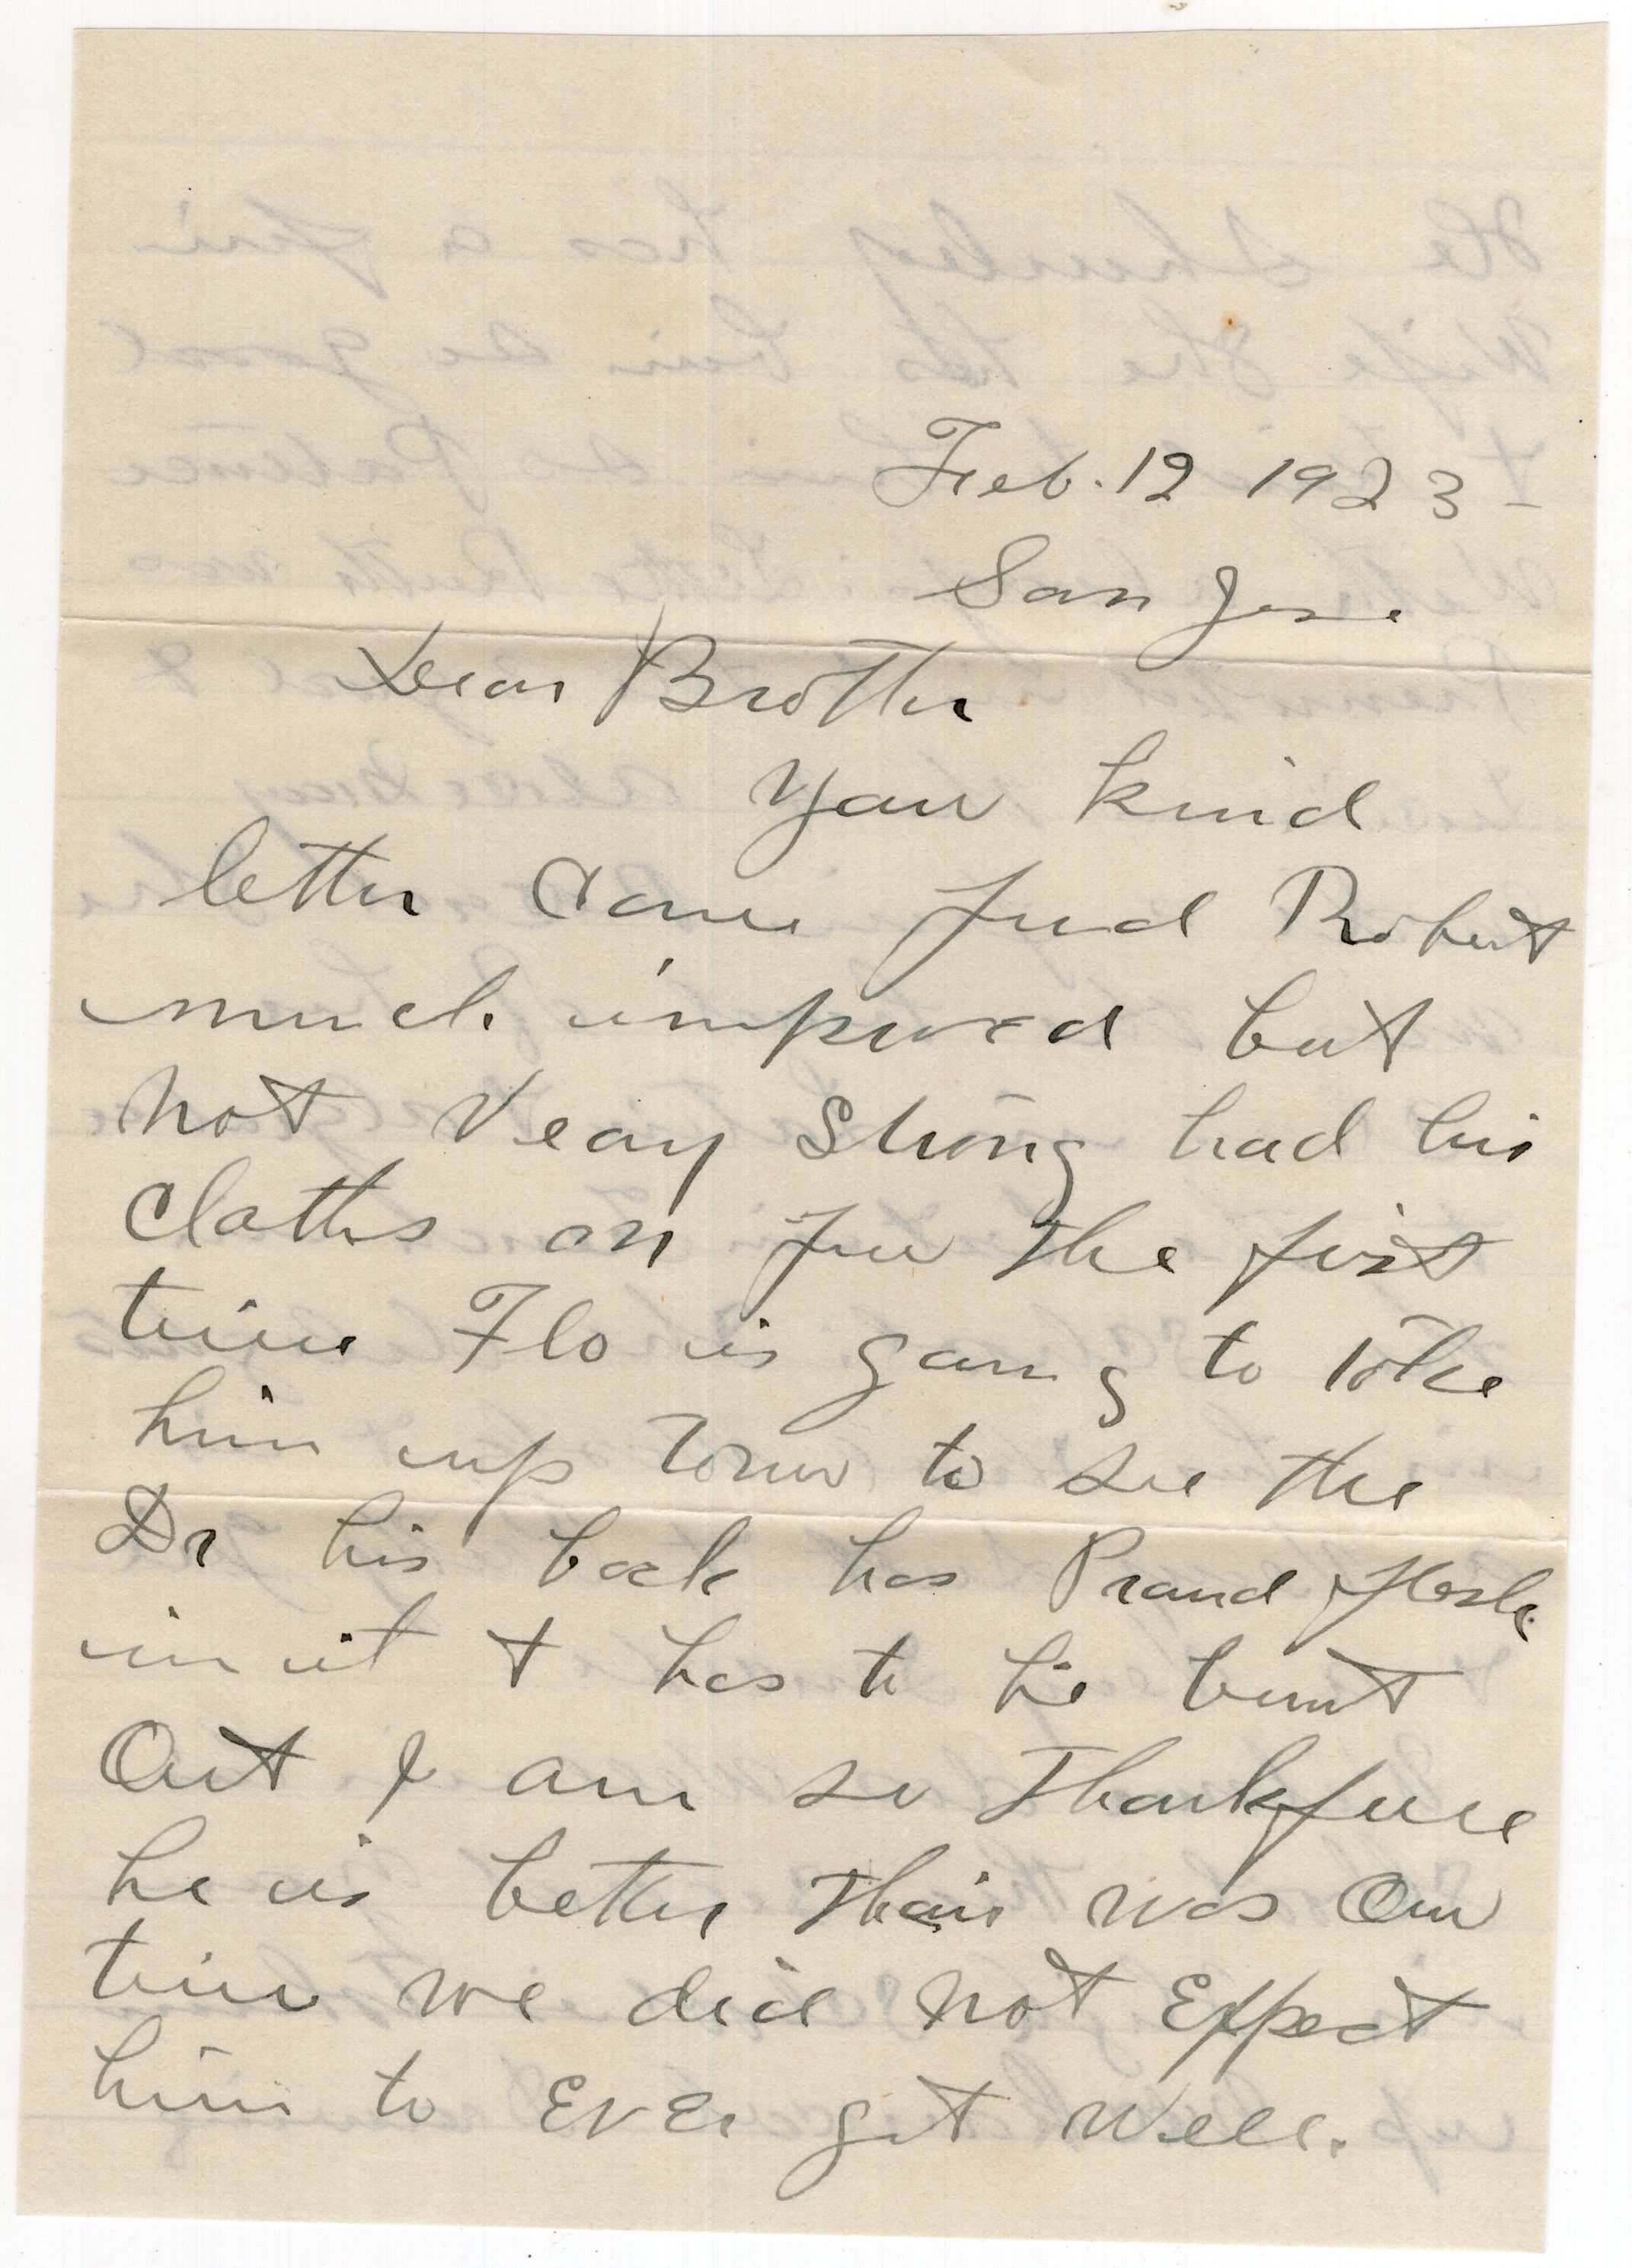 Feb. 12 1923 -
San Jose
Dear Brother
Your kind
letter Came find Robert
much improved but
not Veary Strong had his
Cloths on for the first
time Flo is going to take
him up town to see the
Dr his back has Proud flesh
in it + has to be burnt
Out I am so thankfull
he is better thair was One
time we did not Expect
him to Ever get well.